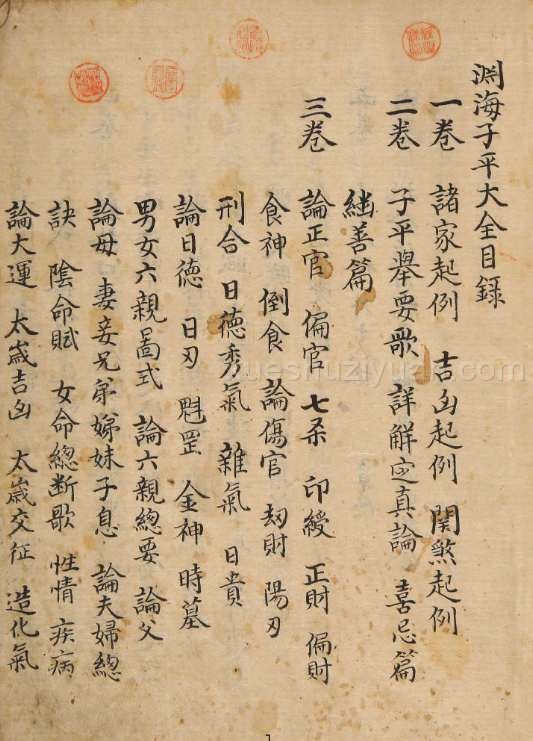 淵海子平大全目錄
一卷 諸家起例 吉凶起例 関煞起例
二卷 子平舉要歌 詳解定真論 喜忌篇
継善篇
三卷 論正官 偏官 七杀 印綬 正財 偏財
食神 倒食 論傷官 刼財 陽刃
刑合 日徳秀氣 雜氣 日貴
論日徳 日刃 魁罡 金神 時墓
男女六親啚式 論六親總要 論父
論母 妻妾兄弟娣妹子息 論夫婦總
訣 陰命賦 女命總断歌 性情 疾病
論大運 太歲吉凶 太歲交征 造化氣
xueshuziyuele.com
1